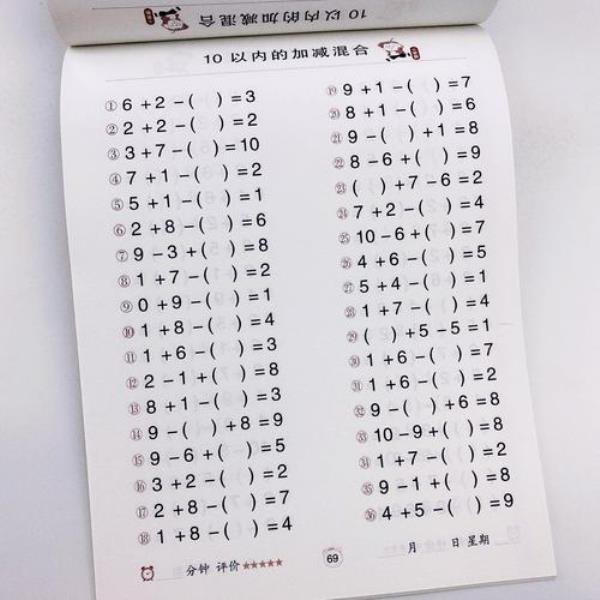 10以内的加减混合
10以内的加减混合
①6+2-( )=3
②2+2-( )=2
③3+7-( )=10
④7+1-( )=2
⑤5+1-( )=1
⑥2+8-( )=6
⑦9-3+( )=8
⑧1+7-( )=2
⑨0+9-( )=1
⑩1+8-( )=4
⑪1+6-( )=3
⑫2-1+( )=8
⑬8+1-( )=3
⑭9-( )+8=9
⑮9-6+( )=5
⑯3+2-( )=2
⑰2+8-( )=7
⑱1+8-( )=4
⑲9+1-( )=7
⑳8+1-( )=6
㉑9-( )+1=8
㉒8-6+( )=9
㉓( )+7-6=2
㉔7+2-( )=4
㉕10-6+( )=7
㉖4+6-( )=5
㉗5+4-( )=1
㉘1+7-( )=4
㉙( )+5-5=1
㉚1+6-( )=7
㉛1+6-( )=2
㉜9-( )+6=8
㉝10-9+( )=8
㉞1+7-( )=2
㉟9-1+( )=8
㊱4+5-( )=9
分钟 评价★★★★★
69
月 日 星期